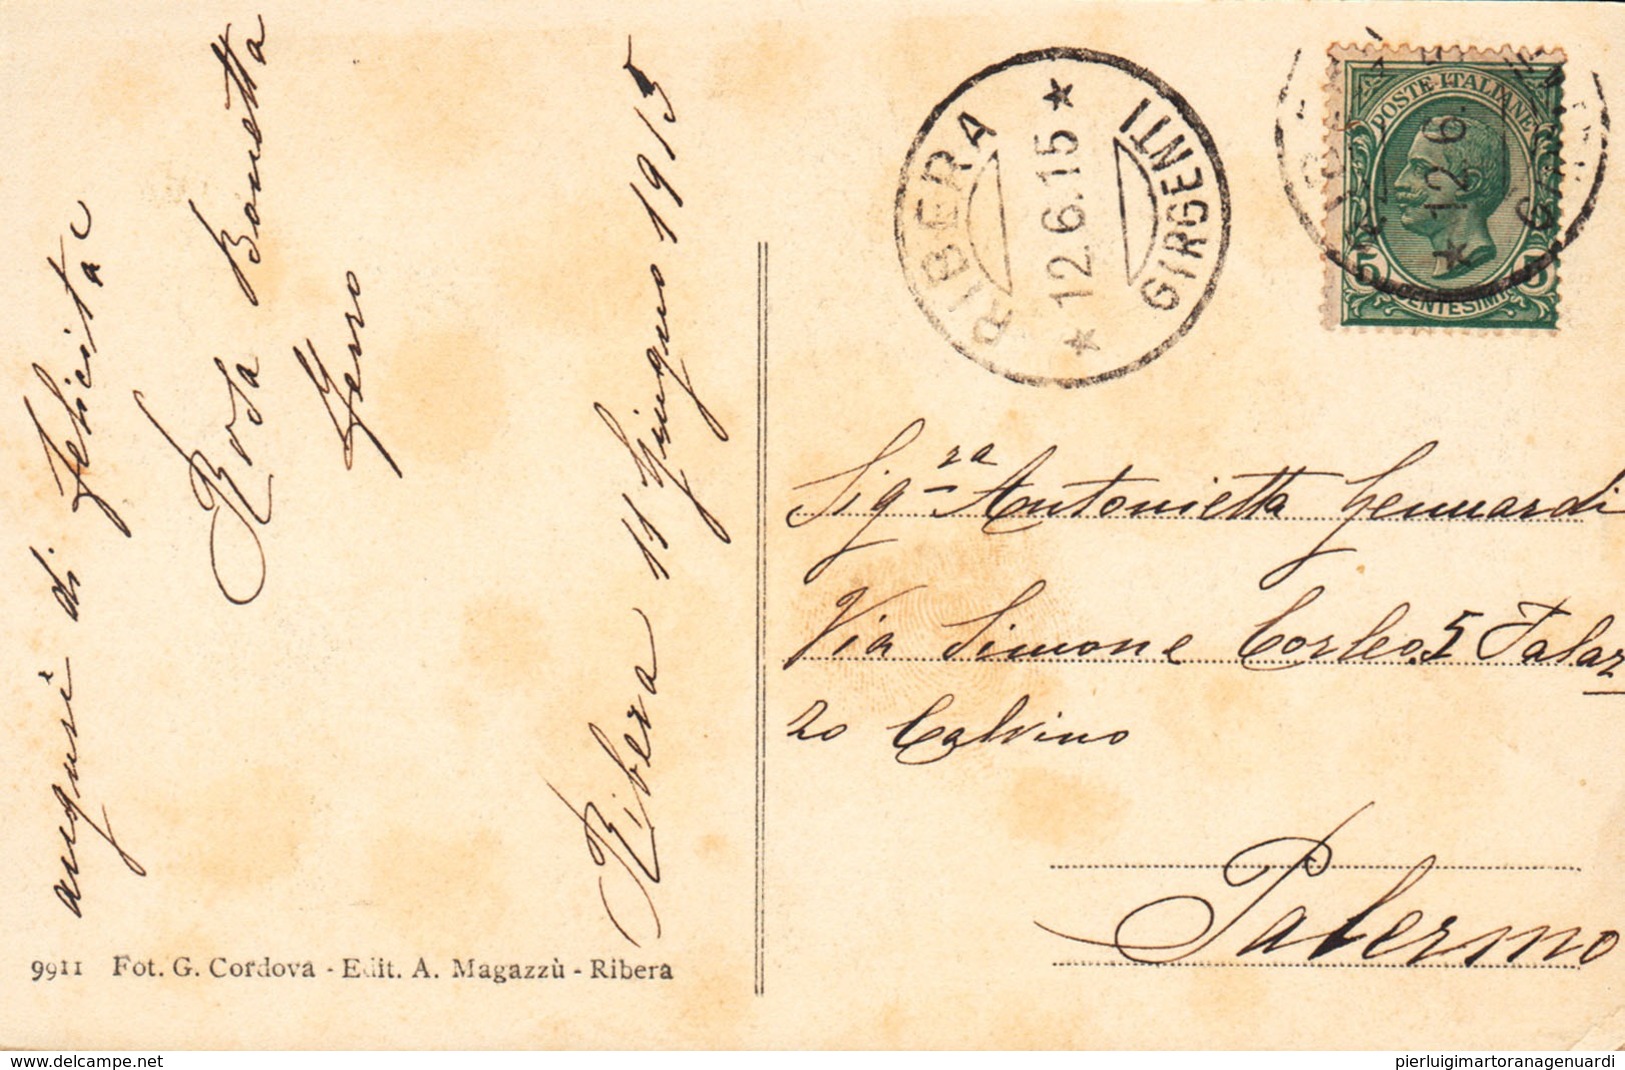 auguri di felicità
Rosa Bonetta
Ribera 11 Giugno 1915
9911 Fot. G. Cordova - Edit. A. Magazzù - Ribera
RIBERA
* 12.6.15 *
GIRGENTI
POSTE·ITALIANE
* 12.6.
5 CENTESIMI 5
Sig.ra Antonietta Gennardi
Via Simone Corleo 5 Palaz
zo Calvino
Palermo
www.delcampe.net
pierluigimartoranagenuardi